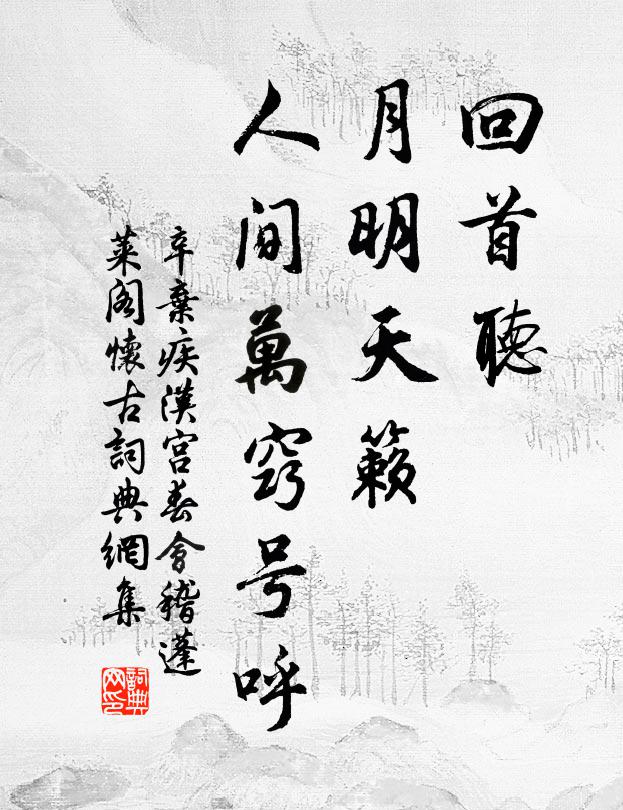 回首聽
月明天籟
人間萬竅号呼
辛棄疾漢宮春會稽蓬
萊閣懷古詞典網集
詞典網印